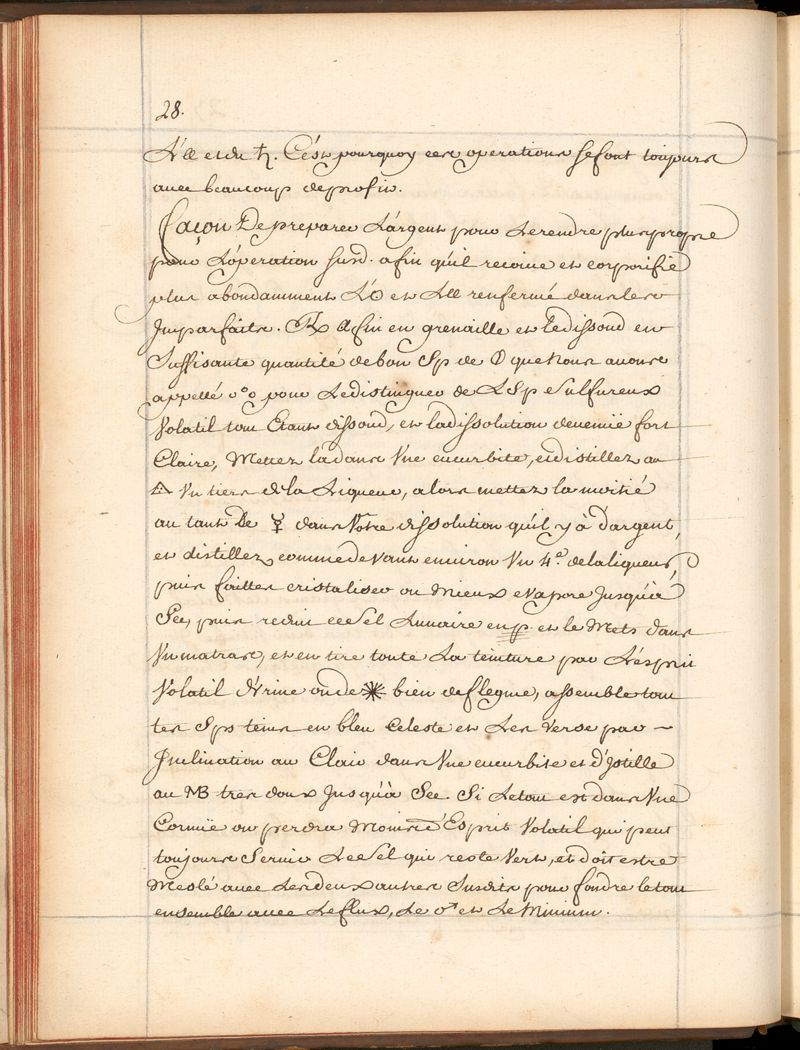 28.
L'☾ et du ♄. C'ést pourquoy ces operations se font toujours
avec beaucoup de profit.
façon De preparer L'argent pour Le rendre plus propre
pour L'operation susd. afin qu'il recoive et corporifie
plus abondamment L'☉ et L☾ renfermé dans les
Imparfaits. ℞ ☾ fin en grenaille et le dissoud en
Suffisante quantité de bon Sp de que Nous avons
appellé pour Le distinguer de L Sp Sulfureux
Volatil tout Etant dissoud, et la dissolution devenüe fort
Claire, Mettez la dans Vne cucurbite, et distillez au
Vn tiers de la Liqueur, alors mettez la moitié
au tant De ☿ dans Votre dissolution qu'il y à d'argent,
et distillez comme devant environ Vn 4.e de la liqueur,
puis faittes cristaliser ou Mieux evapore Jusqu'à
Sec, puis reduit ce Sel Lunaire en p. et le Mets dans
Vn matras, et en tire toute La teinture par L'esprit
Volatil d'Vrine ou de ✳ bien deflegmé, assemble tout
tes Sps teins en bleu Celeste et Les Verse par ~
Inclination au Clair dans Vne cucurbite et d'Istille
au MB tres doux Jusqu'à Sec. Si Le tout est dans Vne
Cornüe on perdra Moins d'Esprit Volatil qui peut
toujours Servir Le Sel qui reste Vert, et doit estre
Meslé avec Les deux autres Susdits pour fondre le tout
ensemble avec Le flux, Le et Le Minium.